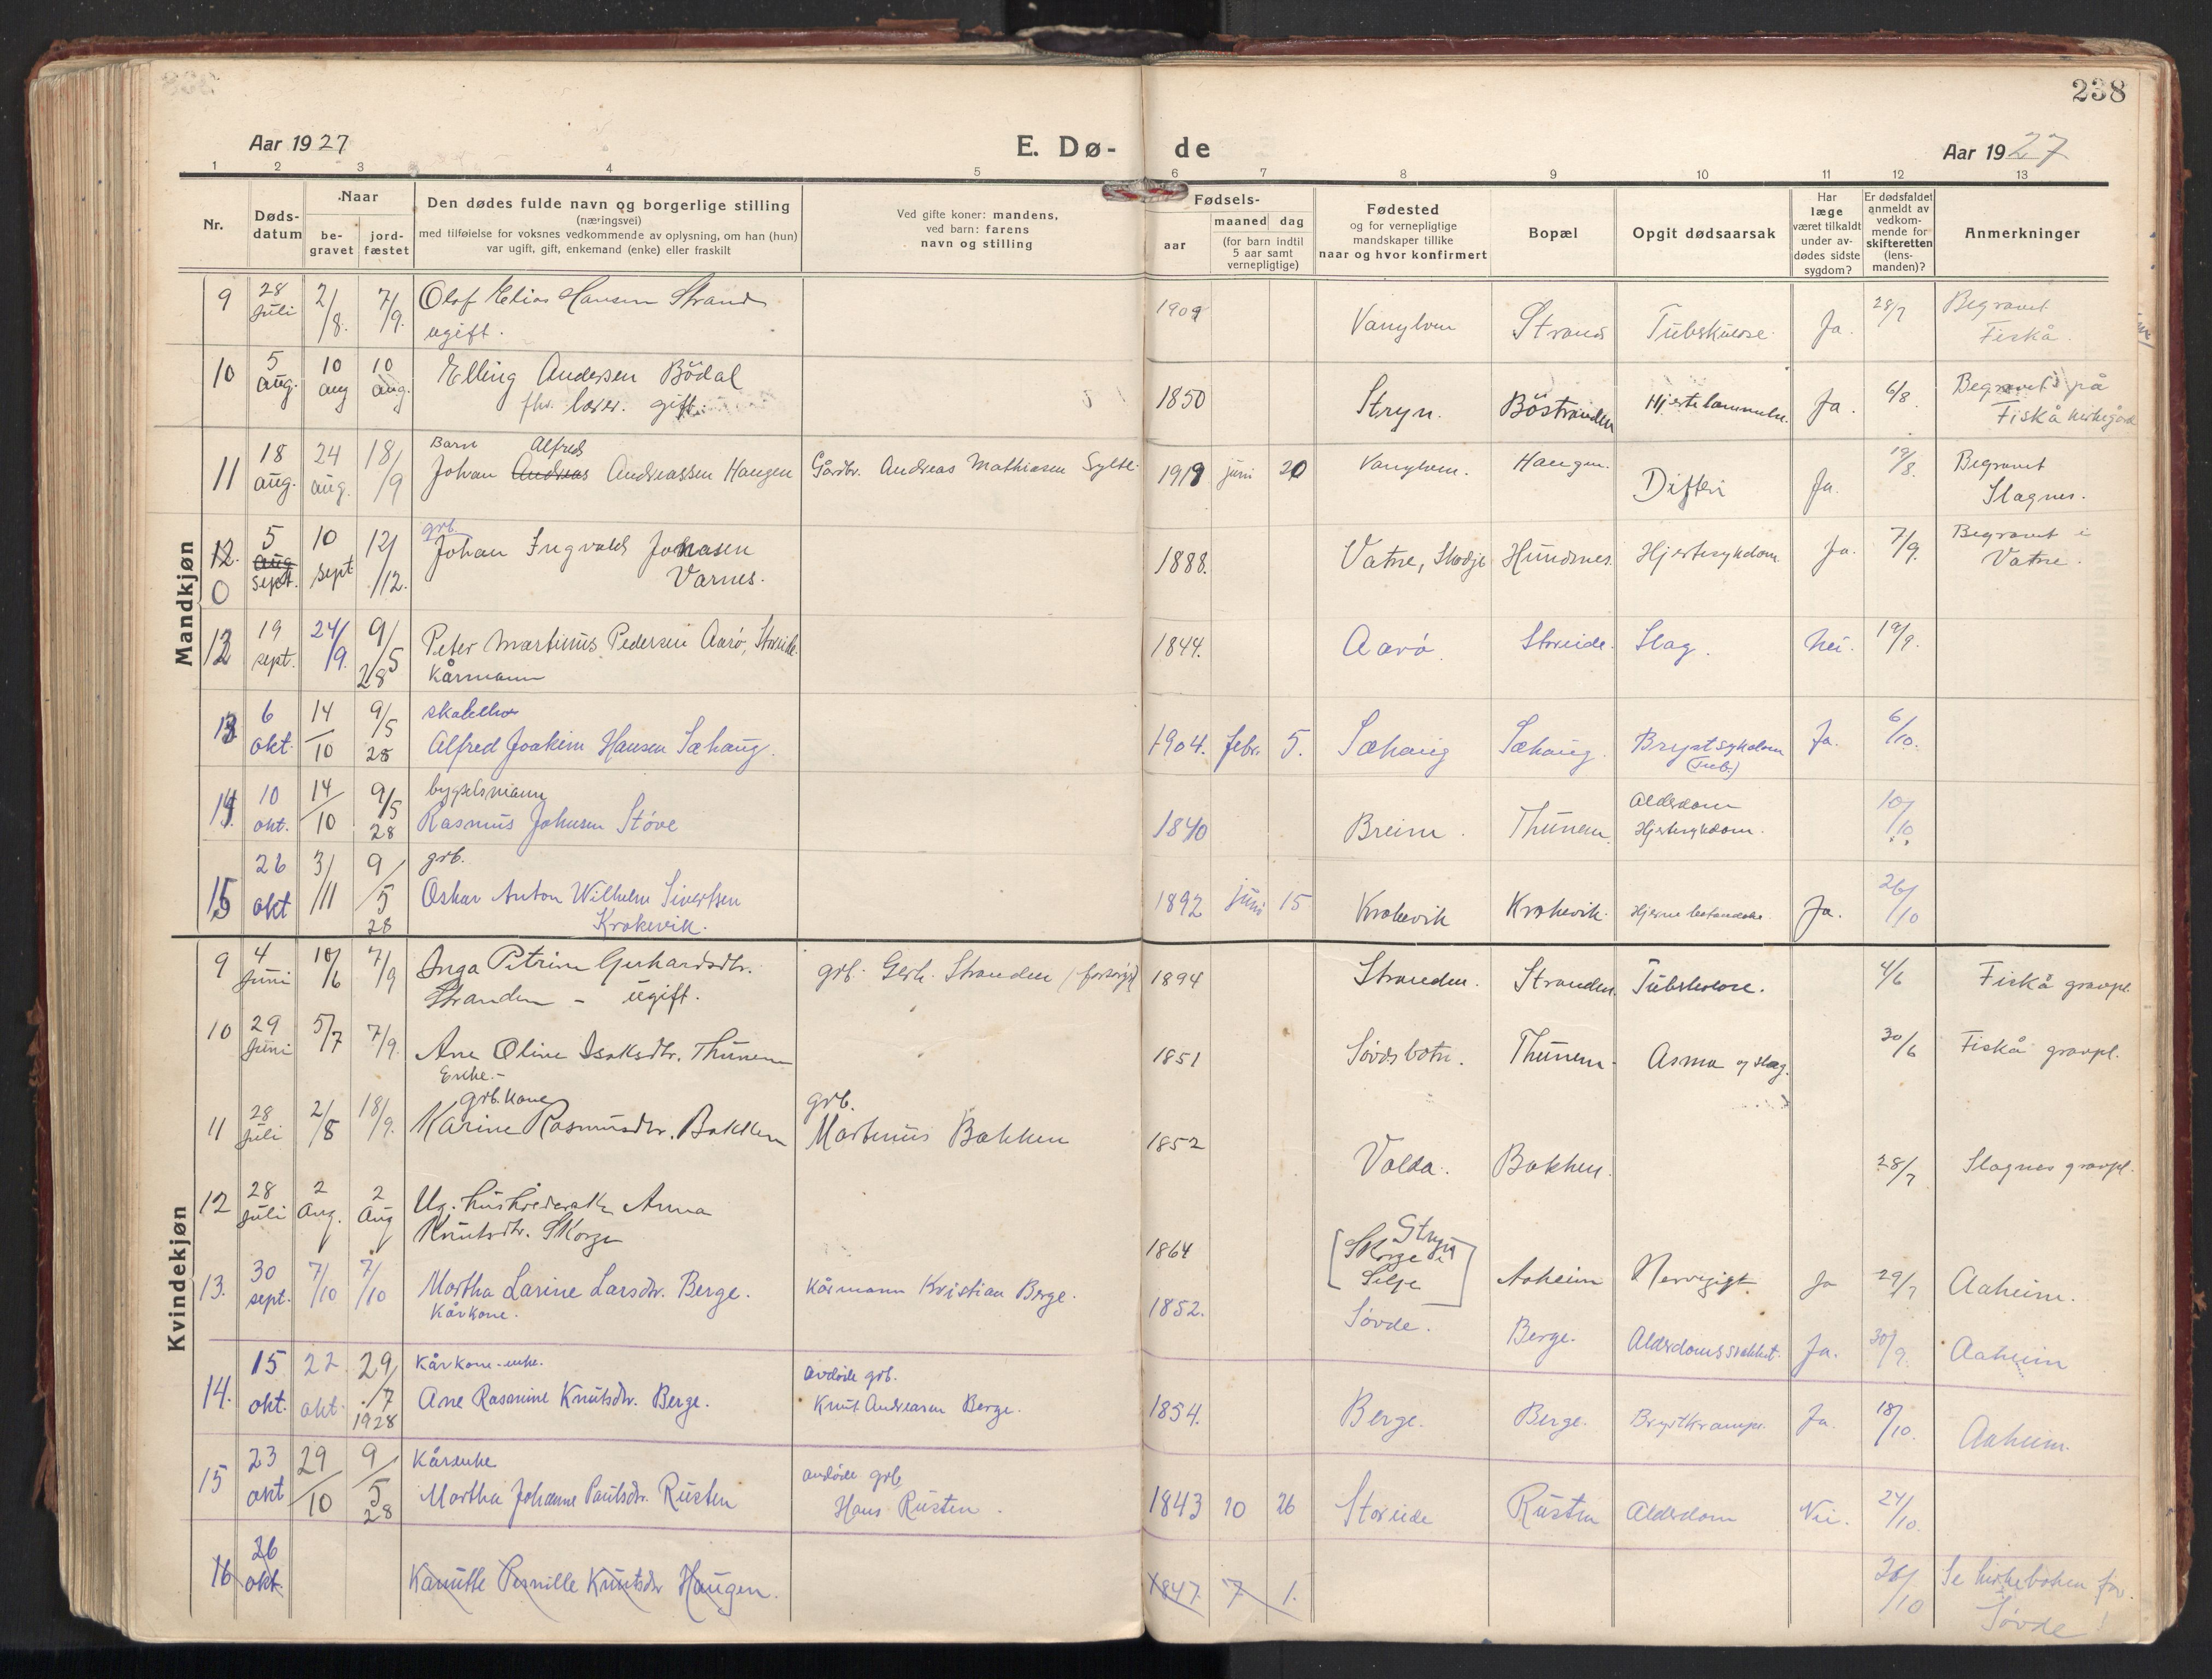 238
Aar 1927 E. Dø- de Aar 1927
1 2 3 4 5 6 7 8 9 10 11 12 13
Nr.
Døds-
datum
Naar
be-
gravet
jord-
fæstet
Den dødes fulde navn og borgerlige stilling
(næringsvei)
med tilføielse for voksnes vedkommende av oplysning, om han (hun)
var ugift, gift, enkemand (enke) eller fraskilt
Ved gifte koner: mandens,
ved barn: farens
navn og stilling
Fødsels-
aar
maaned dag
(for barn indtil
5 aar samt
vernepligtige)
Fødested
og for vernepligtige
mandskaper tillike
naar og hvor konfirmert
Bopæl
Opgit dødsaarsak
Har
læge
været tilkaldt
under av-
dødes sidste
sygdom?
Er dødsfaldet
anmeldt av
vedkom-
mende for
skifteretten
(lens-
manden)?
Anmerkninger
Mandkjøn
9 28 Juli 2/8. 7/9. Olaf Elias Hansen Strand
ugift.
1909 Vanylven Strand Tuberkulose. Ja. 28/7 Begravet
Fiskå.
10 5 aug. 10 aug 10 aug. Elling Andersen Bödal
fhv. lærer. gift.
1850 Stryn. Böstranden Hjertelammelse. Ja. 6/8. Begravet på
Fiskå kirkegård
11 18 aug. 24 aug. 18/9 Barn Alfred
Johan Andreas Andreassen Haugen Gårdbr. Andreas Mathiasen Sylte. 1919 juni 20 Vanylven. Haugen. Difteri Ja. 19/8. Begravet
Slagnes.
12. 0 5 aug sept. 10 sept 12/12. grb.
Johan Ingvald Jonasen
Varnes.
1888. Vatne, Skodje Hundsnes. Hjertesykdom. Ja. 7/9. Begravet i
Vatne.
12 19 sept. 24/9. 9/5 28 Peter Martinus Pedersen Aarø, Storeide.
Kårmann
1844. Aarø. Storeide. Slag. Nei. 19/9.
13 6 okt. 14/10 9/5 28
Alfred Joakim Hansen Sæhaug.
1904. febr. 5. Sæhaug Sæhaug. Brystsykdom
(Tub.) Ja. 6/10.
14. 10 okt. 14/10 9/5 28 bygselmann
Rasmus Johnsen Støve
1840 Breim. Thunem. Alderdom
Hjertesykdom. 10/10
15 26 okt 3/11 9/5 28 grb.
Oskar Anton Wilhelm Sivertsen
Krokevik.
1892 juni 15 Krokevik Krokevik. Hjernebetændelse. Ja. 26/10
Kvindekjøn
9 4 Juni 10/6 7/9 Inga Petrine Gerhardsdtr.
Stranden - ugift.
grb. Gerh. Stranden (forsørget) 1894 Stranden. Stranden. Tuberkulose. 4/6 Fiskå gravpl.
10 29 Juni 5/7 7/9. Ane Oline Isaksdtr. Thunem
Enke.-
1851 Søvdsbotn. Thunem. Asma og slag. 30/6 Fiskå gravpl.
11 28 Juli 2/8 18/9. grb. kone
Karine Rasmusdtr. Bakken
grb.
Martinus Bakken 1852 Volda. Bakken. 28/7 Slagnes gravpl.
12 28 Juli 2 Aug. 2 Aug Ug. Anna
Knutsdtr. Skorge
1864 [Skorge i Stryn
Selje] Aaheim Nervegigt Ja 29/7 Aaheim.
13. 30 sept. 7/10 7/10 Martha Larine Larsdtr. Berge.
Kårkone.
Kårmann Kristian Berge. 1852. Søvde. Berge. Alderdomssvakhet. Ja. 30/9. Aaheim
14. 15 okt. 22 okt. 29/7 1928 Kårkone-enke.
Ane Rasmine Knutsdtr. Berge.
avdøde grb.
Knut Andreasen Berge. 1854. Berge. Berge. Brystkrampe. Ja. 18/10. Aaheim.
15 23 okt 29/10 9/5 28 Kårenke
Martha Johanne Paulsdtr. Rusten
avdøde grb
Hans Rusten. 1843 10 26 Storeide Rusten Alderdom Nei. 24/10.
16 26 okt. Kanutte Pernille Knutsdtr Haugen. 1847. 7 1. 26/10 Se kirkeboken for
Søvde!